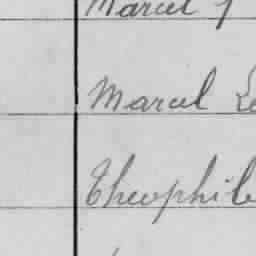 Marcel J
Marcel Le
Theophile